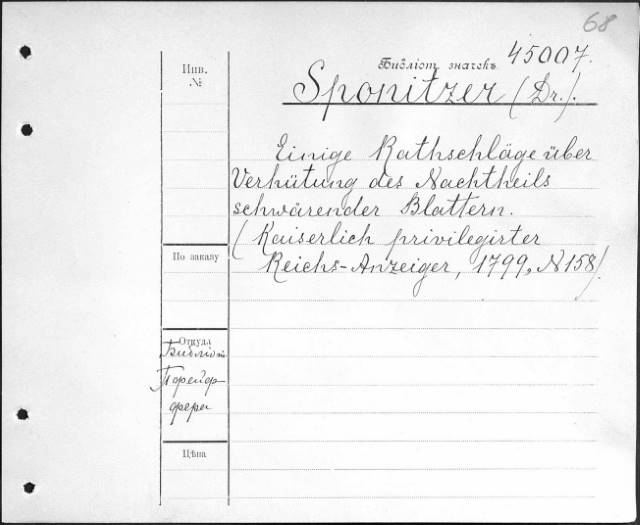 68
Инв.
№
Библіот. значекъ 45007.
Sponitzer (Dr.).
Einige Rathschläge über
Verhütung des Nachtheils
schwärender Blattern.
(Kaiserlich privilegirter
Reichs-Anzeiger, 1799, N 158).
По заказу
Откуда
Цѣна